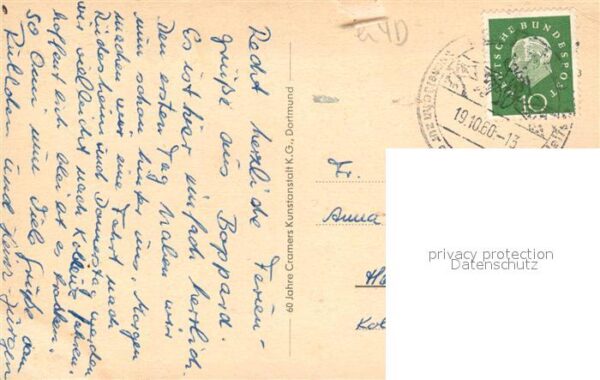 Recht herzliche Ferien-
grüße aus Boppard.
Es ist hier einfach herrlich.
Den ersten Tag haben wir
nun schon hinter uns. Morgen
machen wir eine Fahrt nach
Rüdesheim und Donnerstag werden
wir vielleicht nach Koblenz fahren.
hoffentlich bleibt es trocken.
So nun viele Grüße von
und Jürgen
60 Jahre Cramers Kunstanstalt K.G., Dortmund
Fr.
Anna
DEUTSCHE BUNDESPOST
10
19.10.60-13
privacy protection
Datenschutz